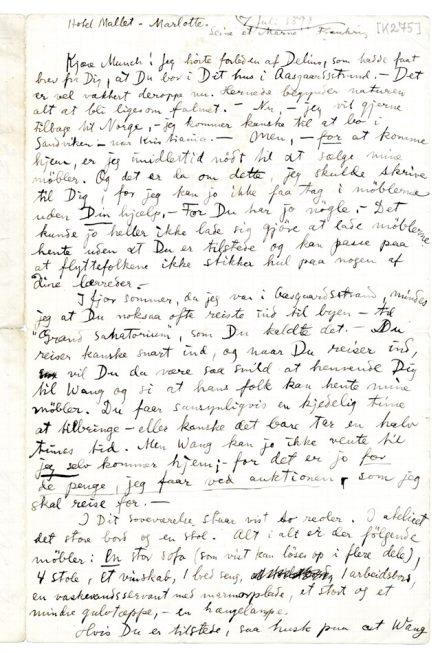 Hotel Mallet - Marlotte. 7 Juli 1898
Seine et Marne Frankrig [K275]
Kjære Munch! Jeg hørte forleden af Delius, som havde faat
brev fra Dig, at Du bor i Dit hus i Aasgaardsstrand. - Det
er vel vakkert deroppe nu. Hernede begynder naturen
alt at bli ligesom falmet. - Nu, - jeg vil gjerne
tilbage til Norge, - jeg kommer kanske til at bo i
Sandviken - nær Kristiania. - Men, - for at komme
hjem, er jeg imidlertid nødt til at sælge mine
møbler. Og det er da om dette, jeg skulde skrive
til Dig; for jeg kan jo ikke faa tag i møblerne
uden Din hjælp, - For Du har jo nøgle; - Det
kunde jo heller ikke lade sig gjøre at lade møblerne
hente uden at Du er tilstede og kan passe paa
at flyttefolkene ikke stikker hul paa nogen af
Dine lærreder. -
Ifjor sommer, da jeg var i Aasgaardsstrand, mindes
jeg at Du noksaa ofte reiste ind til byen - til
"Grand Sanatorium, som Du kaldte det. - Du
reiser kanske snart ind, og naar Du reiser ind,
vil Du da være saa snild at henvende Dig
til Wang og si at hans folk kan hente mine
møbler. Du faar sansynligvis en kjedelig time
at tilbringe - eller kanske det bare ter en halv
times tid. Men Wang kan jo ikke vente til
jeg selv kommer hjem; - for det er jo for
de penge, jeg faar ved auktionen, som jeg
skal reise for. -
I Dit soveværelse staar vist to reoler. I atelieret
det store bord og en stol. Alt i alt er der følgende
møbler: En stor sofa (som vist kan løses op i flere dele),
4 stole, Et vinskab, 1 bed seng, 1 arbeidsbord,
en vaskevandsservant med marmorplade, et stort og et
mindre gulvtæppe, - en hængelampe.
Hvis Du er tilstede, saa husk paa at Wang